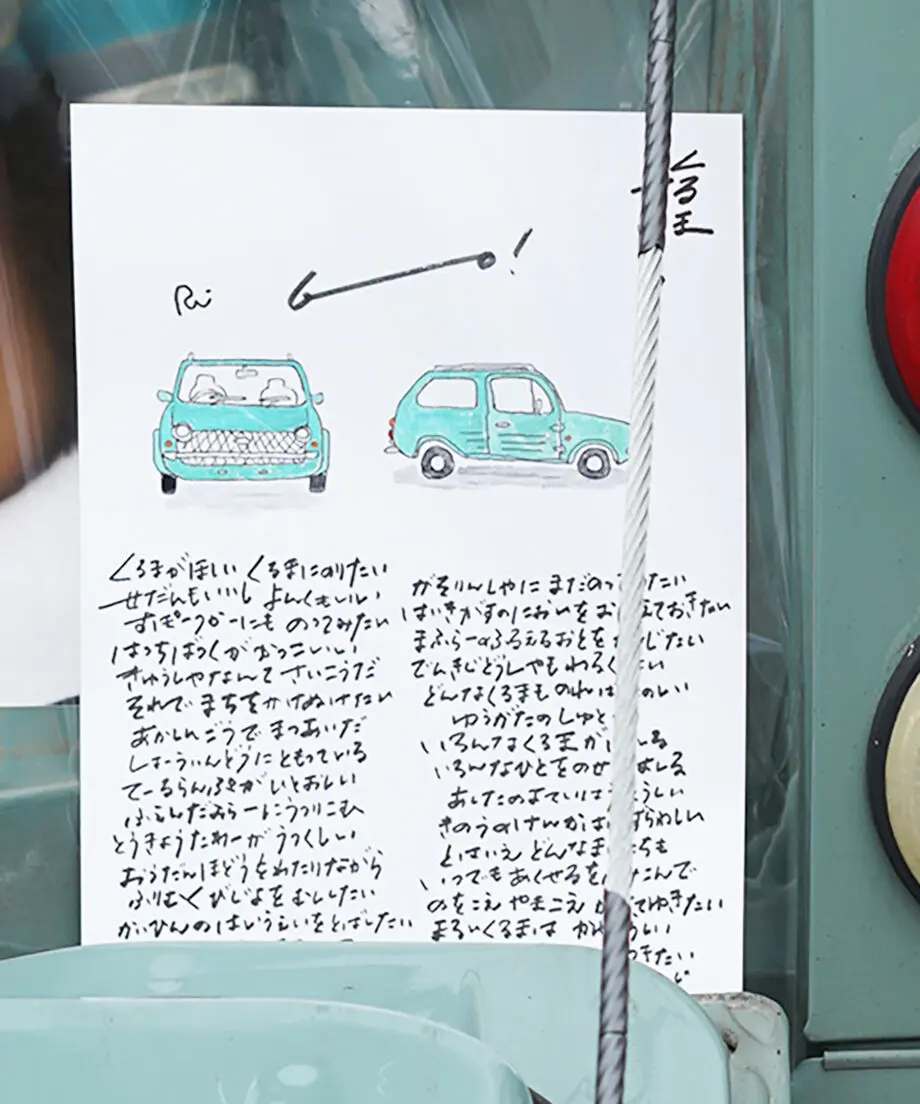 くるま
くるまがほしい くるまにのりたい
せだんもいいし よんくもいい
すぽーつかーにも のってみたい
はっちばっくが かっこいい
きゅうしゃなんて さいこうだ
それで まちをかけぬけたい
あかしんごうで まつあいだ
しょーういんどうに ともっている
てーるらんぷが いとおしい
ふぇんだみらーに うつりこむ
とうきょうたわーが うつくしい
おうだんほどうを わたりながら
ふりむくびじょを むししたい
かいひんの はいうぇいを とばしたい
がそりんしゃに まだのって たい
はいきがすのにおいを お えておきたい
まふらーの ふるえるおとを じたい
でんきじどうしゃも わるく い
どんなくるまも のれば のしい
ゆうがたのしゅと
いろんなくるまが る
いろんなひとをのせ はしる
あしたのよていは しい
きのうのけんかは ずらわしい
とはいえ どんなま ちも
いつでも あくせるを こんで
のをこえ やまこえ てゆきたい
まるいくるまは いい
きたい